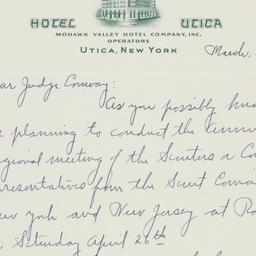 HOTEL UTICA
MOHAWK VALLEY HOTEL COMPANY, INC.
OPERATORS
UTICA, NEW YORK
March,
ar Judge Conway:
As you possibly kno
planning to conduct the annu
egional meeting of the Scouters
presentatives from the Scout Counci
ew York and New Jersey at Ro
Saturday April 26th